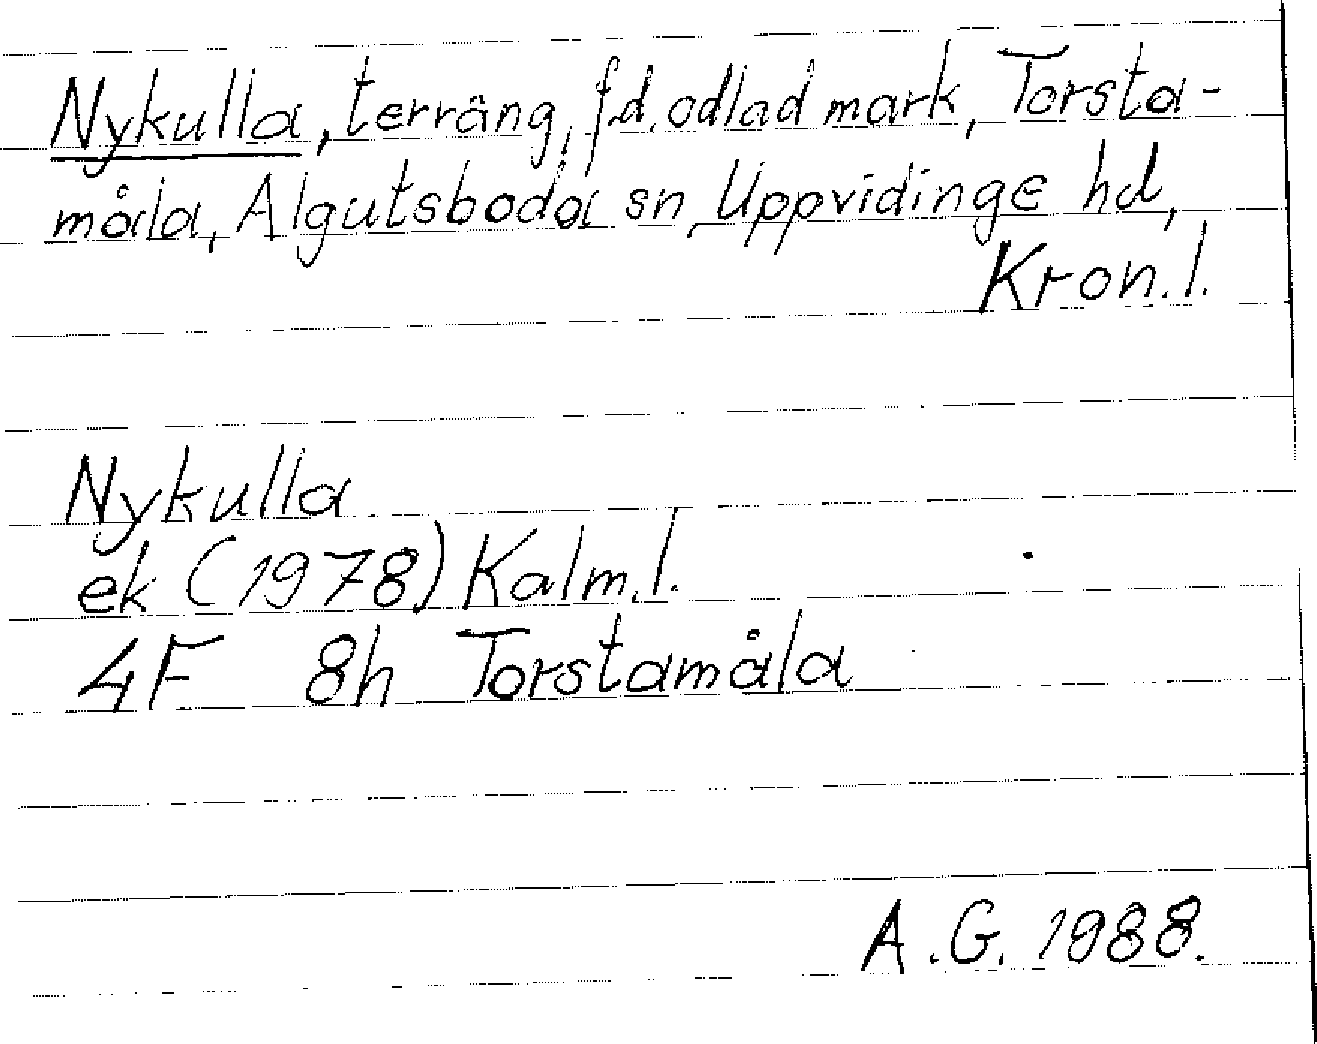 Nykulla, terräng, f.d. odlad mark, Torsta-
måla, Algutsboda sn, Uppvidinge hd,
Kron.l.
Nykulla
ek (1978) Kalm.l.
4F 8h Torstamåla
A.G. 1988.